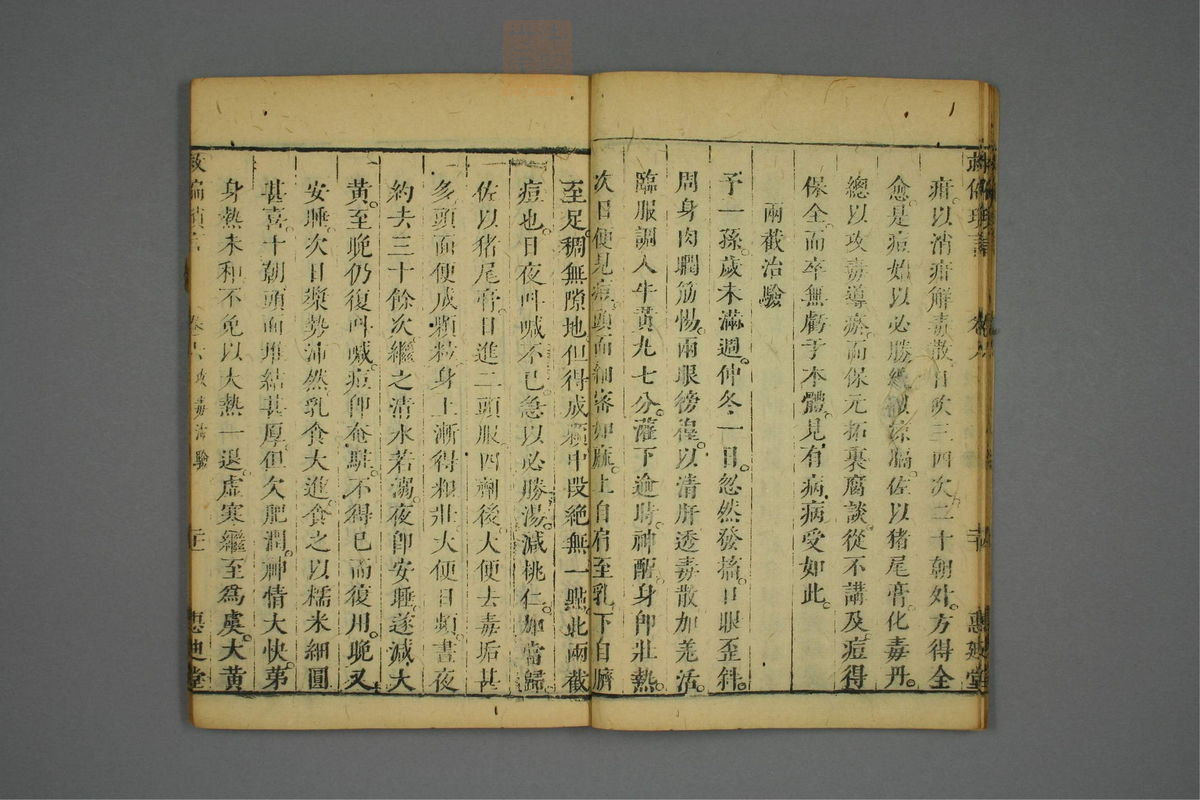 疳以消疳解毒散日吹三四次二十朝外方得全
愈是痘始以必勝繼涼膈佐以猪尾膏化毒丹
總以攻毒導瘀而保元拓裹腐談從不講及痘得
保全而卒無虧于本體見有病病受如此
兩截治驗
予一孫歲未滿週仲冬一日忽然發搐口眼歪斜
周身肉瞤筋惕兩眼徬徨以清肝透毒散加羌活
臨服調入牛黃九七分灌下逾時神醒身即壯熱
次日便見痘頭面細密如麻上自肩至乳下自臍
至足稠無隙地但得成顆中段絕無一點此兩截
痘也日夜叫喊不已急以必勝湯減桃仁加當歸
佐以猪尾膏日進二頭服四劑後大便去毒垢甚
多頭面便成顆粒身上漸得粗壯大便日頻晝夜
約去三十餘次繼之清水若溺夜即安睡遂減大
黃至晚仍復叫喊痘即奄駐不得已而復用晚又
安睡次日漿勢沛然乳食大進食之以糯米細圓
甚喜十朝頭面堆結甚厚但欠肥潤神情大快弟
身熱未和不免以大熱一退虛寒繼至爲虞大黃
救偏瑣言
卷六 攻毒治驗
惠迪堂